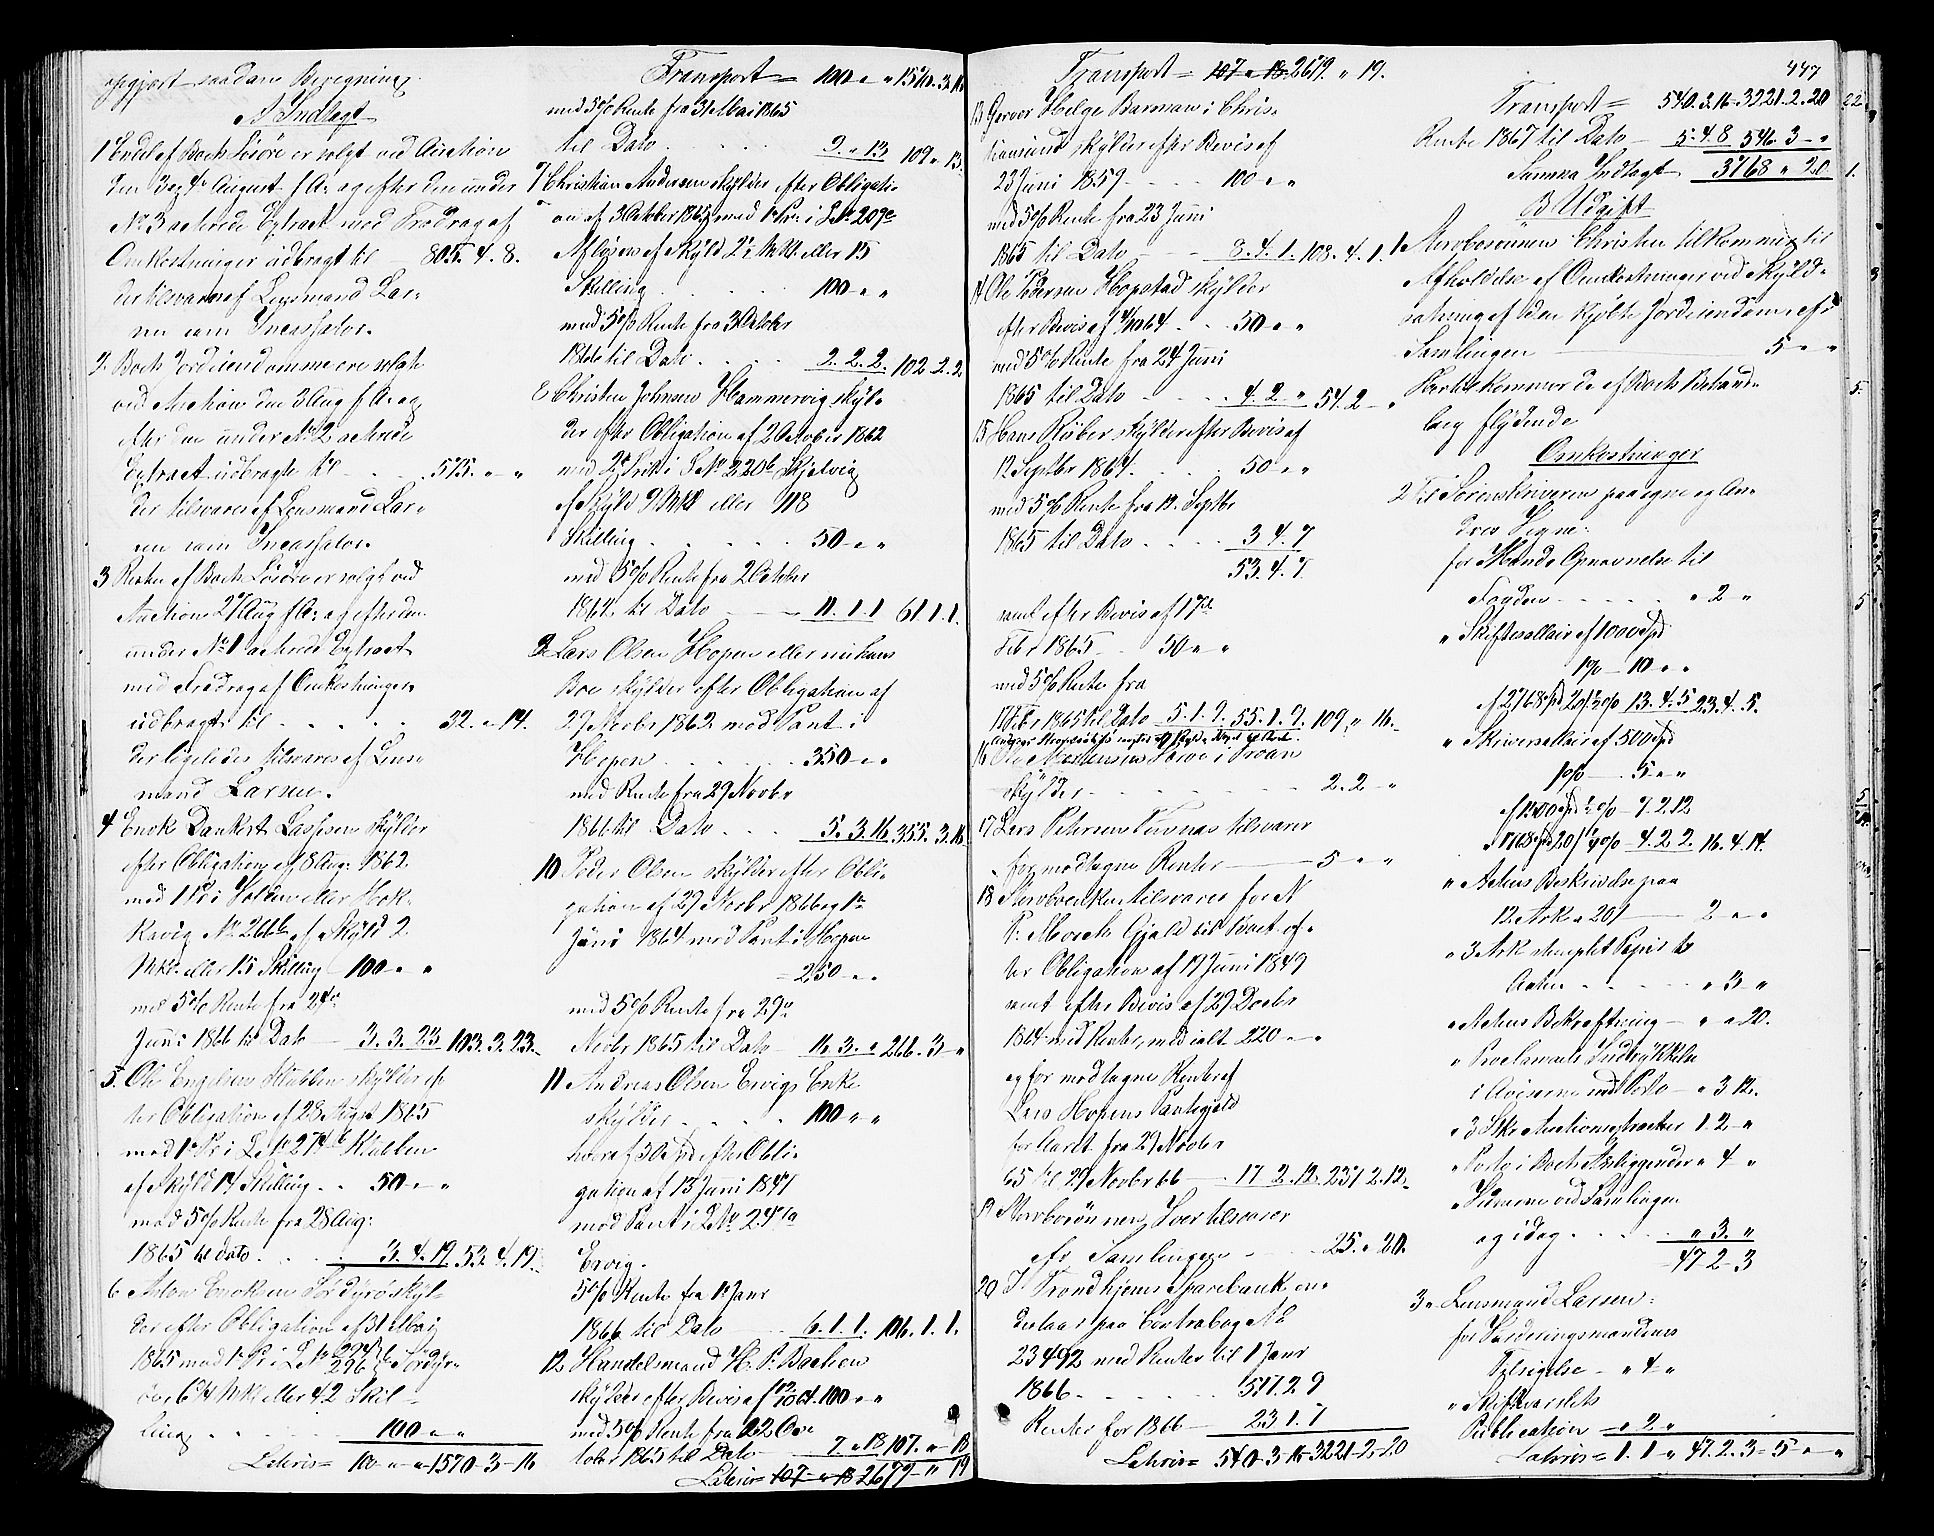 opgjort saadan Beregning.
A Indtægt
1 Endel af Boets Løsøre er solgt ved Auction
den 3 og 4de August f. A. og efter den under
No 3 acterede Extract med Fradrag af
Omkostninger udbragt til 805. 4. 8.
der tilsvares af Lensmand Lar-
sen som Incassator.
2. Boets Jordeiendomme ere solgte
ved Auction den 3 Aug f. A. og
efter den under No 2 acterede
Extract udbragte til 575. " "
der tilsvares af Lensmand Lar-
sen som Incassator.
3 Resten af Boets Løsøre er solgt ved
Auction 27 Aug f. A. og efter den
under No 1 acterede Extract
med Fradrag af Omkostninger
udbragt til 32. " 14.
der ligeledes tilsvares af Lens-
mand Larsen.
4 Enok Dankert Lassesen skylder
efter Obligation af 8 Aug: 1862.
med 1 Pr i Holden eller Hok-
kavig No 266b af Skyld 2.
Mk. eller 15 Skilling 100 " "
med 5% Rente fra 24de
Juni 1866 til Dato 3. 3. 23 103. 3. 23.
5. Ole Engelsen Klubben skylder ef-
ter Obligation af 28 August 1865
med 1ste Pr i L No 274b Klubben
af Skyld 14 Skilling 50 " "
med 5% Rente fra 28 Aug:
1865 til dato 3. 4. 19. 53. 4. 19.
6 Anton Enoksen Sørdyrø skyl-
der efter Obligation af 31 Mai
1865 med 1 Pr i L No 294/296 b Sørdyr-
øen 6/4 Mk eller 42 Skil-
ling 100 " "
Lateris = 100 " " 1570-3-16
Transport = 100 " " 1570. 3. 16
med 5% Rente fra 31 Mai 1865
til Dato 9. " 13 109 " 13.
7 Christian Andersen skylder efter Obligati-
on af 3 October 1865 med 1ste Pr. i L No 209c
Afløsen af Skyld 2/2 Mk. eller 15
Skilling 100 " "
med 5% Rente fra 3 October
1866 til Dato 2. 2. 2. 102. 2. 2.
8 Christen Johnsen Hammervig skyl-
der efter Obligation af 2 October 1862
med 2den Prit i L No 220b Hjelvig
af Skyld 2 Mk eller 118
Skilling 50 " "
med 5% Rente fra 2 October
1862 til Dato 11. 1. 1 61. 1. 1.
9. Lars Olsen Hopen eller nu hans
Boe skylder efter Obligation af
29 Novbr 1862 med Pant i
Hopen 350 " "
med Rente fra 29 Novbr
1866 til Dato 5. 3. 16. 355. 3. 16
10 Peder Olsen skylder efter Obli-
gation af 29 Novbr 1866 og 1ste
Juni 1864 med Pant i Hopen
250 " "
med 5% Rente fra 29de
Novbr 1865 til Dato 16. 3. " 266. 3 "
11 Andreas Olsen Ervigs Enke
skylder 100 " "
heraf 30 Spd efter Obli-
gation af 13 Juni 1847
med Pant i L No 247a
Ervig.
5% Rente fra 1 Janr
1866 til Dato 6. 1. 1. 106. 1. 1.
12 Handelsmand H. P. Backen
skylder efter Bevis af 22 Oct. 100 " "
med 5% Rente fra 22 Oc-
tober 1865 til Dato 7. " 18 107. " 18
Lateris = 107 " 18 2679 " 19
Transport = 107 " 18 2679. " 19.
13 Garver Helge Barman i Chris-
tiansund skylder efter Bevis af
23 Juni 1859 100 " "
med 5% Rente fra 23 Juni
1865 til Dato 8. 4. 1. 108. 4. 1.
14 Ole Pedersen Hopstad skylder
efter Bevis af 4/10 64 50 " "
med 5% Rente fra 24 Juni
1865 til Dato 4. 2 " 54. 2 "
15 Hans Røber skylder efter Bevis af
12 Septbr 1864. 50 " "
med 5% Rente fra 12. Septbr
1865 til Dato 3 4. 7
53. 4. 7.
samt efter Bevis af 17de
Febr 1865 50 " "
med 5% Rente fra
17 Febr 1865 til Dato 5. 1. 9. 55. 1. 9. 109. " 16.
16 Ole Mortensen i Froan
skylder 2. 2 "
17 Lars Petersen Tuvnæs tilsvarer
for modtagne Renter 5 " "
18 Skovboenken tilsvarer for N
P. Morsets Gjæld til Boet ef-
ter Obligation af 19 Juni 1849
samt efter Bevis af 29 Decbr
1864 med Renter, med ialt 220 " "
og for modtagne Renter af
Lars Hopens Pantegjæld
for Aaret fra 29 Novbr
65 til 29 Novbr 66 17 2. 12. 237 2. 12.
19 Storboesønnen Iver tilsvarer
efr Samlingen 25. " 20.
20 I Trondhjems Sparebank in-
destaar paa Contrabog No
23492 med Renter til 1 Janr
1866 517. 2 9
Renter for 1866 23 1. 7
Lateris = 540-3-16-3221-2-20
447
Transport = 540. 3. 16-3221. 2. 20
Rente 1867 til Dato 5. 4 8 546. 3 "
Summa Indtægt 3768 " 20
B Udgift
1 Storboesønnen Christen tilkommer til
Afholdelse af Omkostninger ved Skyld-
sætning af den kjøbte Jordeiendom efr
Samlingen 5 " "
Herfra kommer de af Boets Behand-
ling flydende
Omkostninger
2 Til Sorenskriveren paa egne og An-
dres Vegne:
for Mands Opnævnelse til
Fogden " 2 "
" Skiftesallair af 1000 Spd
1% 10 " "
af 2768 Spd 20 s ½% 13. 4. 5 23. 4. 5.
" Skriversallair af 500 Spd
1% 5 " "
af 1500 Spd ½% 7. 2. 12
af 1768 Spd 20 s ¼% 4. 2 2. 16. 4. 14.
" Actens Beskrivelse paa
12 Ark a 20 s 2 " "
" 3 Ark stemplet Papir til
Acten " 3 "
" Actens Bekræftning " " 20.
" Proclamaets Indrykkelse
i Aviserne med Porto " 3 12.
" 3 Skr Auctionsextracter 1. 2 "
" Porto i Boets Anliggender " 4 "
" Vidnerne ved Samlingen
og idag " 3. "
47 2 3
3. Lensmand Larsen:
for Vurderingsmændenes
Tilsigelse " 4 "
" Skiftevarslets
Publication " 2 "
Lateris = 1. 1 " 47. 2. 3 = 5 " "